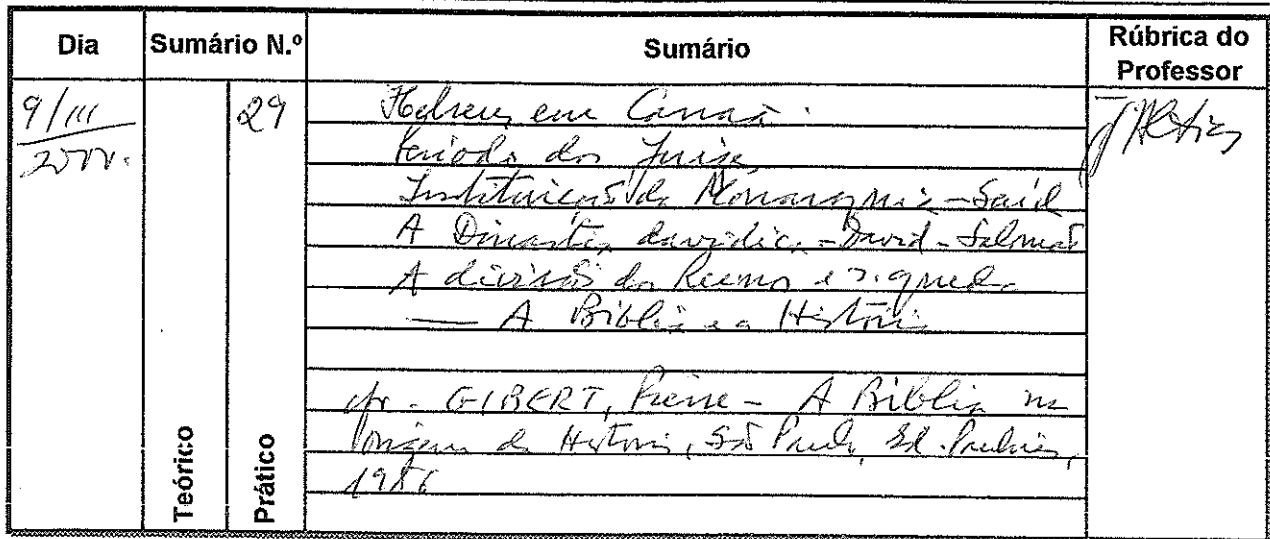 Dia Sumário N.º Sumário Rúbrica do Professor
9/III 29 Hebreus em Canaã.
Período dos Juízes
Instituição da Monarquia - Saúl
A Dinastia davídica - David - Salomão
A divisão do Reino e queda
— A Bíblia e a História
cfr - GIBERT, Pierre - A Bíblia na
origem da História, São Paulo, Ed. Paulinas,
1986
Teórico
Prático